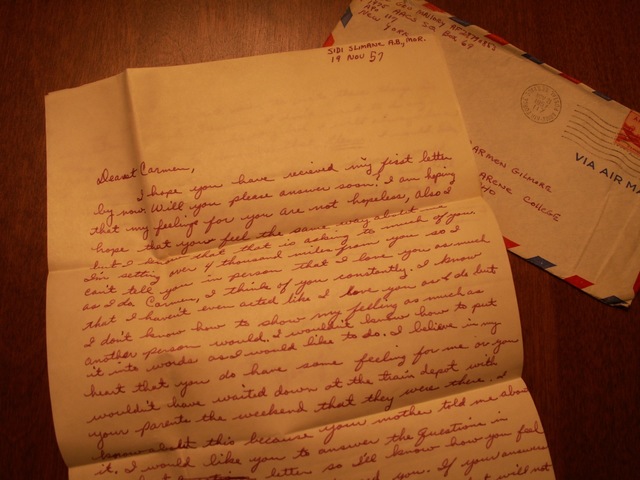 SIDI SLIMANE A.B., MOR.
19 NOV 57
Dearest Carmen,
I hope you have recieved my first letter
by now. Will you please answer soon? I am hoping
that my feelings for you are not hopeless, also I
hope that you feel the same way about me
but I know that that is asking to much of you
I'm setting over 4 thousand miles from you so I
can't tell you in person that I love you as much
as I do. Carmen, I think of you constantly. I know
that I haven't even acted like I love you as I do but
I don't know how to show my feeling as much as
another person would. I wouldn't know how to put
it into words as I would like to do. I believe in my
heart that you do have some feeling for me or you
wouldn't have waited down at the train depot with
your parents the weekend that they were there. I
know about this because your mother told me about
it. I would like you to answer the questions in
letter so I'll know how you feel
you. If your answer
will not
APO 117
NEW YORK
BOX 69
VIA AIR MA
ARMON GILMORE
ARENE COLLEGE
HO